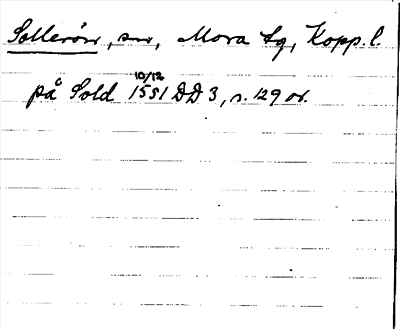 Sollerön, sn, Mora tg, Kopp.l.
på Sold 10/12 1551 DD 3, s. 129 or.